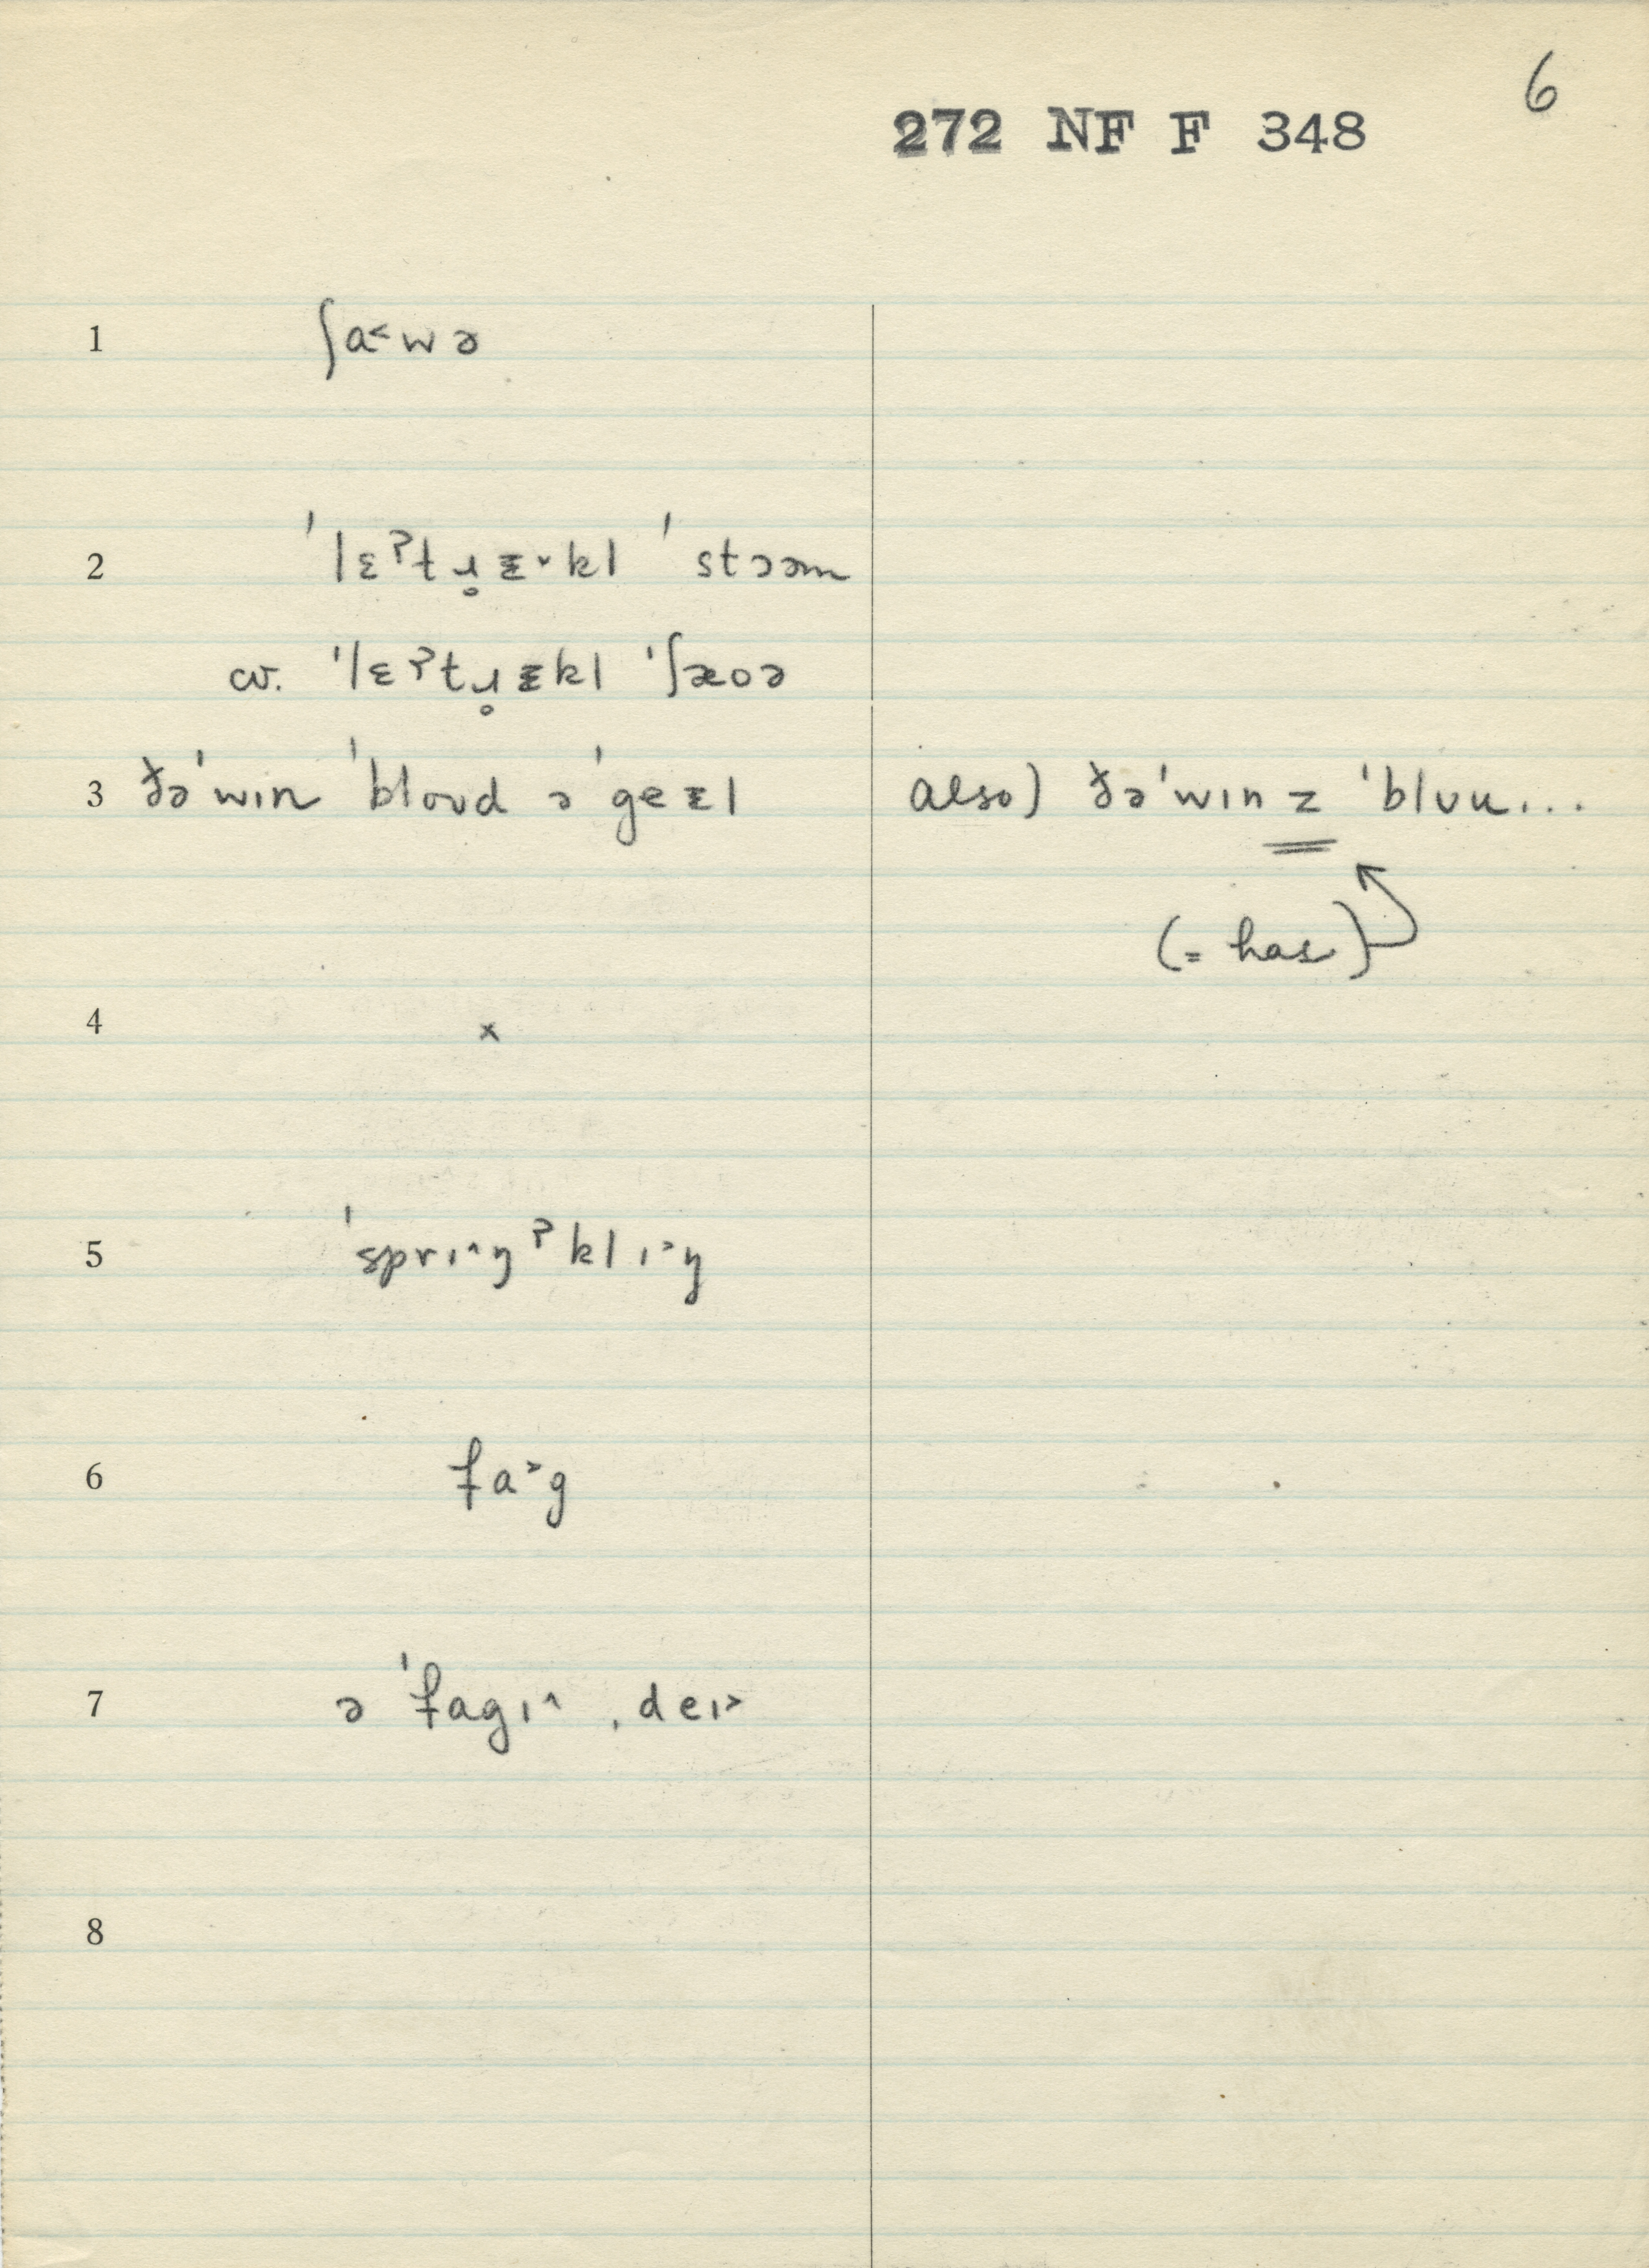 6
272 NF F 348
1 ʃa˂wə
2 ˈlɛˀtɹ̥ᵻ˅kl ˈstɔəm
cv. ˈlɛˀtɹ̥ᵻkl ˈʃæoə
3 ðəˈwɪn ˈbloʊd əˈgeᵻl also) ðəˈwɪnz ˈblʊu...
(= has)
4 x
5 ˈsprɪ˄ŋˀklɪ˃ŋ
6 fa˃g
7 ə ˈfagɪ˄ ˌdeɪ˃
8